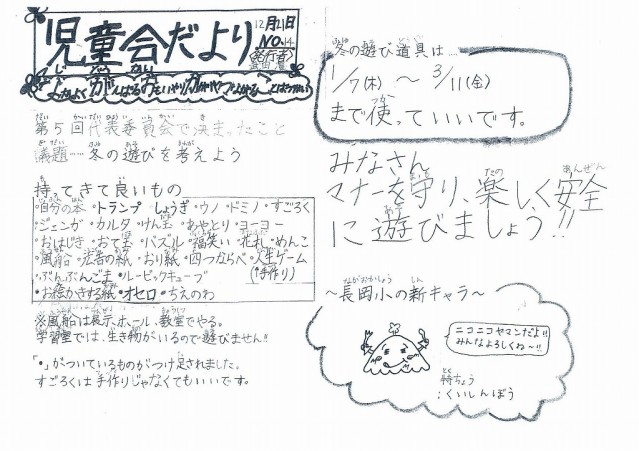 児童会だより
12月21日
NO.14
第5回代表委員会で決まったこと
議題……冬の遊びを考えよう
持ってきて良いもの
・自分の本・トランプ・しょうぎ・ウノ・ドミノ・すごろく
・ジェンガ・カルタ・けん玉・あやとり・ヨーヨー
・おはじき・おて玉・パズル・福笑い・花札・めんこ
・風船・折り紙・四つならべ・人生ゲーム
(手作り)
・ぶんぶんごま・ルービックキューブ
・お絵かきする紙・オセロ・ちえのわ
※風船は展示ホール、教室でやる。
学習室では、生き物がいるので遊びません!!
「・」がついているものがつけ足されました。
すごろくは手作りじゃなくてもいいです。
冬の遊び道具は……
1/7(木)〜3/11(金)
まで使っていいです。
みなさん
マナーを守り、楽しく安全
に遊びましょう!!
〜長岡小の新キャラ〜
ニコニコヤマンだよ!!
みんなよろしくね〜!!
特ちょう
:くいしんぼう